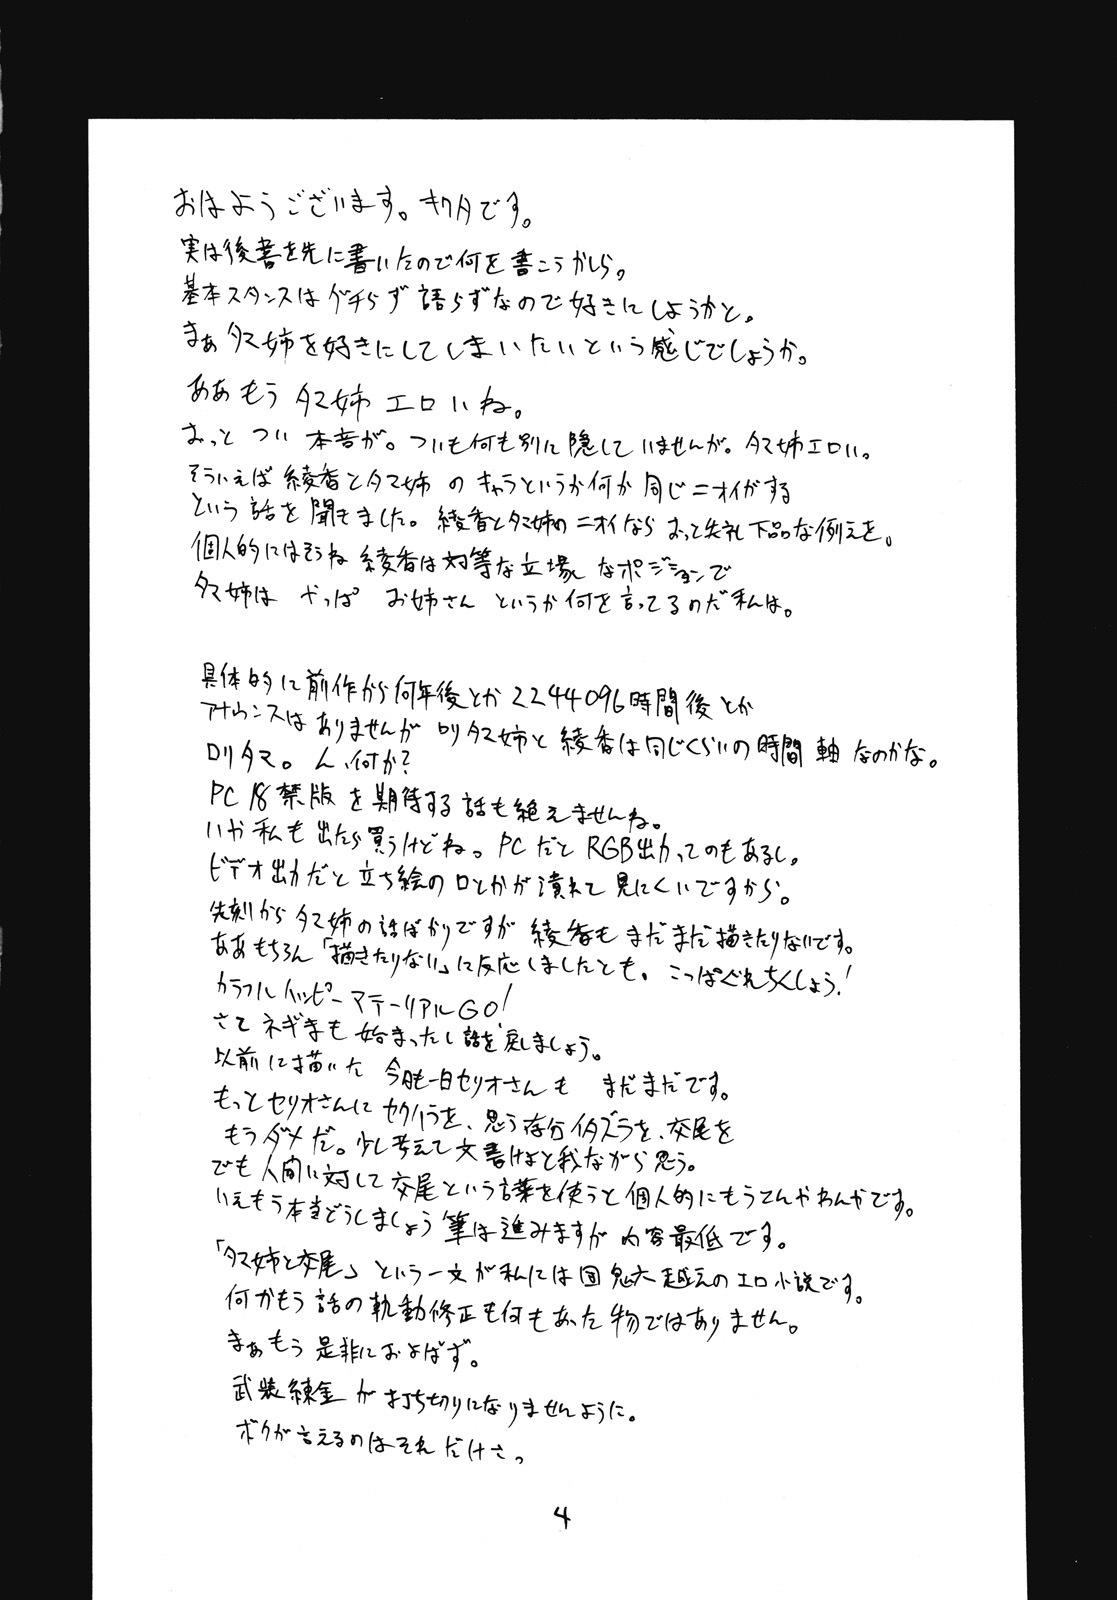 おはようございます。キクタです。
実は後書を先に書いたので何を書こうかしら。
基本スタンスはグチらず語らずなので好きにしようかと。
まぁタマ姉を好きにしてしまいたいという感じでしょうか。
ああもう タマ姉 エロいね。
おっと つい 本音が。ついも何も別に隠していませんが。タマ姉エロい。
そういえば綾香とタマ姉のキャラというか何か同じニオイがする
という話を聞きました。綾香とタマ姉のニオイなら おっと失礼下品な例えを。
個人的にはそうね 綾香は対等な立場なポジションで
タマ姉は やっぱ お姉さん というか何を言ってるのだ私は。
具体的に前作から何年後とか2244096時間後とか
アナウンスはありませんが ロリタマ姉と綾香は同じくらいの時間軸なのかな。
ロリタマ。ん、何か?
PC18禁版を期待する話も絶えませんね。
いか私も出たら買うけどね。PCだとRGB出力ってのもあるし。
ビデオ出力だと立ち絵の口とかが潰れて見にくいですから。
先刻からタマ姉の話ばかりですが 綾香もまだまだ描きたりないです。
ああもちろん「描きたりない」に反応しましたとも。こっぱぐれちくしょう!
カラフルハッピーマテーリアルGO!
さてネギまも始まったし話を戻しましょう。
以前に描いた 今日も一日セリオさんも まだまだです。
もっとセリオさんにセクハラを、思う存分イタズラを、交尾を
もうダメだ。少し考えて文書けよと我ながら思う。
でも人間に対して交尾という言葉を使うと個人的にもうてんやわんやです。
いえもう本当どうしましょう 筆は進みますが内容最低です。
「タマ姉と交尾」という一文が私には団鬼六越えのエロ小説です。
何かもう話の軌動修正も何もあった物ではありません。
まぁもう是非におよばず。
武装練金が打ち切りになりませんように。
ボクが言えるのはそれだけさ。
4